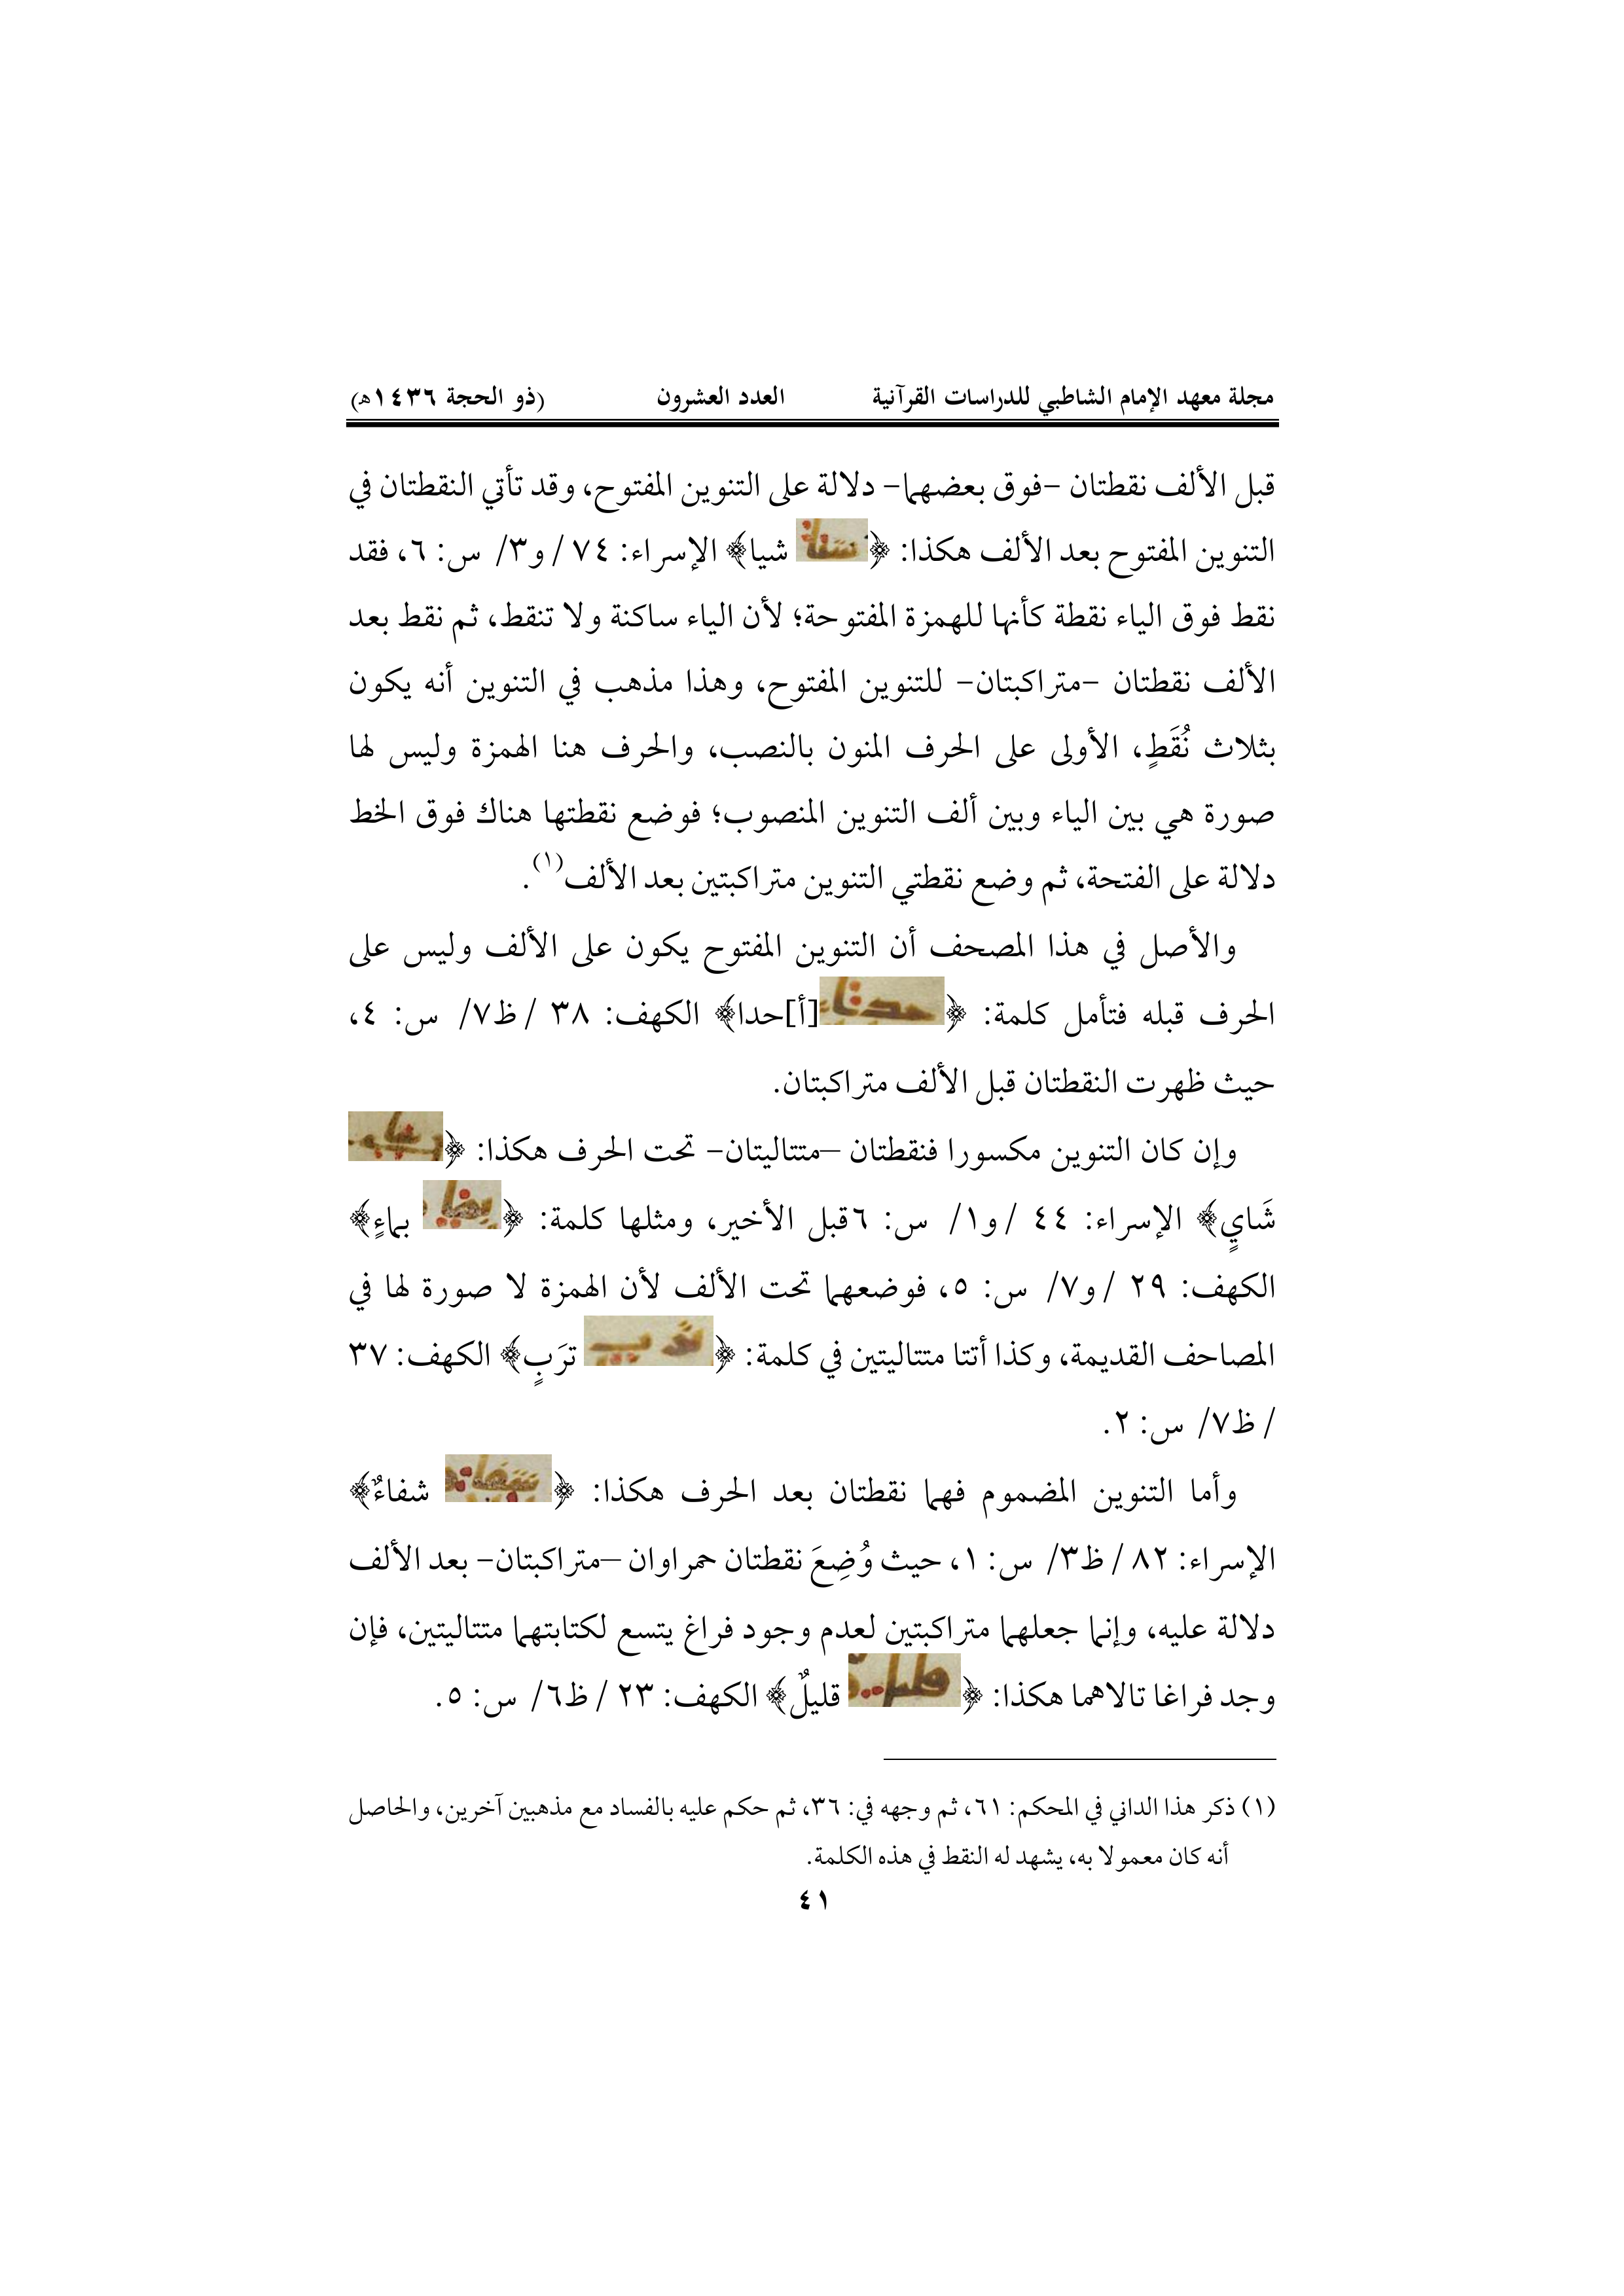 مجلة معهد الإمام الشاطبي للدراسات القرآنية العدد العشرون (ذو الحجة ١٤٣٦هـ)
قبل الألف نقطتان –فوق بعضهما– دلالة على التنوين المفتوح، وقد تأتي النقطتان في
التنوين المفتوح بعد الألف هكذا: ﴿ شيا﴾ الإسراء: ٧٤ / و٣/ س: ٦، فقد
نقط فوق الياء نقطة كأنها للهمزة المفتوحة؛ لأن الياء ساكنة ولا تنقط، ثم نقط بعد
الألف نقطتان –متراكبتان– للتنوين المفتوح، وهذا مذهب في التنوين أنه يكون
بثلاث نُقَطٍ، الأولى على الحرف المنون بالنصب، والحرف هنا الهمزة وليس لها
صورة هي بين الياء وبين ألف التنوين المنصوب؛ فوضع نقطتها هناك فوق الخط
دلالة على الفتحة، ثم وضع نقطتي التنوين متراكبتين بعد الألف(١).
والأصل في هذا المصحف أن التنوين المفتوح يكون على الألف وليس على
الحرف قبله فتأمل كلمة: ﴿ [أ]حدا﴾ الكهف: ٣٨ / ظ٧/ س: ٤،
حيث ظهرت النقطتان قبل الألف متراكبتان.
وإن كان التنوين مكسورا فنقطتان –متتاليتان– تحت الحرف هكذا: ﴿
شَايٍ﴾ الإسراء: ٤٤ / و١/ س: ٦قبل الأخير، ومثلها كلمة: ﴿ بماءٍ﴾
الكهف: ٢٩ / و٧/ س: ٥، فوضعهما تحت الألف لأن الهمزة لا صورة لها في
المصاحف القديمة، وكذا أتتا متتاليتين في كلمة: ﴿ ترَبٍ﴾ الكهف: ٣٧
/ ظ٧/ س: ٢.
وأما التنوين المضموم فهما نقطتان بعد الحرف هكذا: ﴿ شفاءٌ﴾
الإسراء: ٨٢ / ظ٣/ س: ١، حيث وُضِعَ نقطتان حمراوان –متراكبتان– بعد الألف
دلالة عليه، وإنما جعلهما متراكبتين لعدم وجود فراغ يتسع لكتابتهما متتاليتين، فإن
وجد فراغا تالاهما هكذا: ﴿ قليلٌ﴾ الكهف: ٢٣ / ظ٦/ س: ٥.
(١) ذكر هذا الداني في المحكم: ٦١، ثم وجهه في: ٣٦، ثم حكم عليه بالفساد مع مذهبين آخرين، والحاصل
أنه كان معمولا به، يشهد له النقط في هذه الكلمة.
٤١